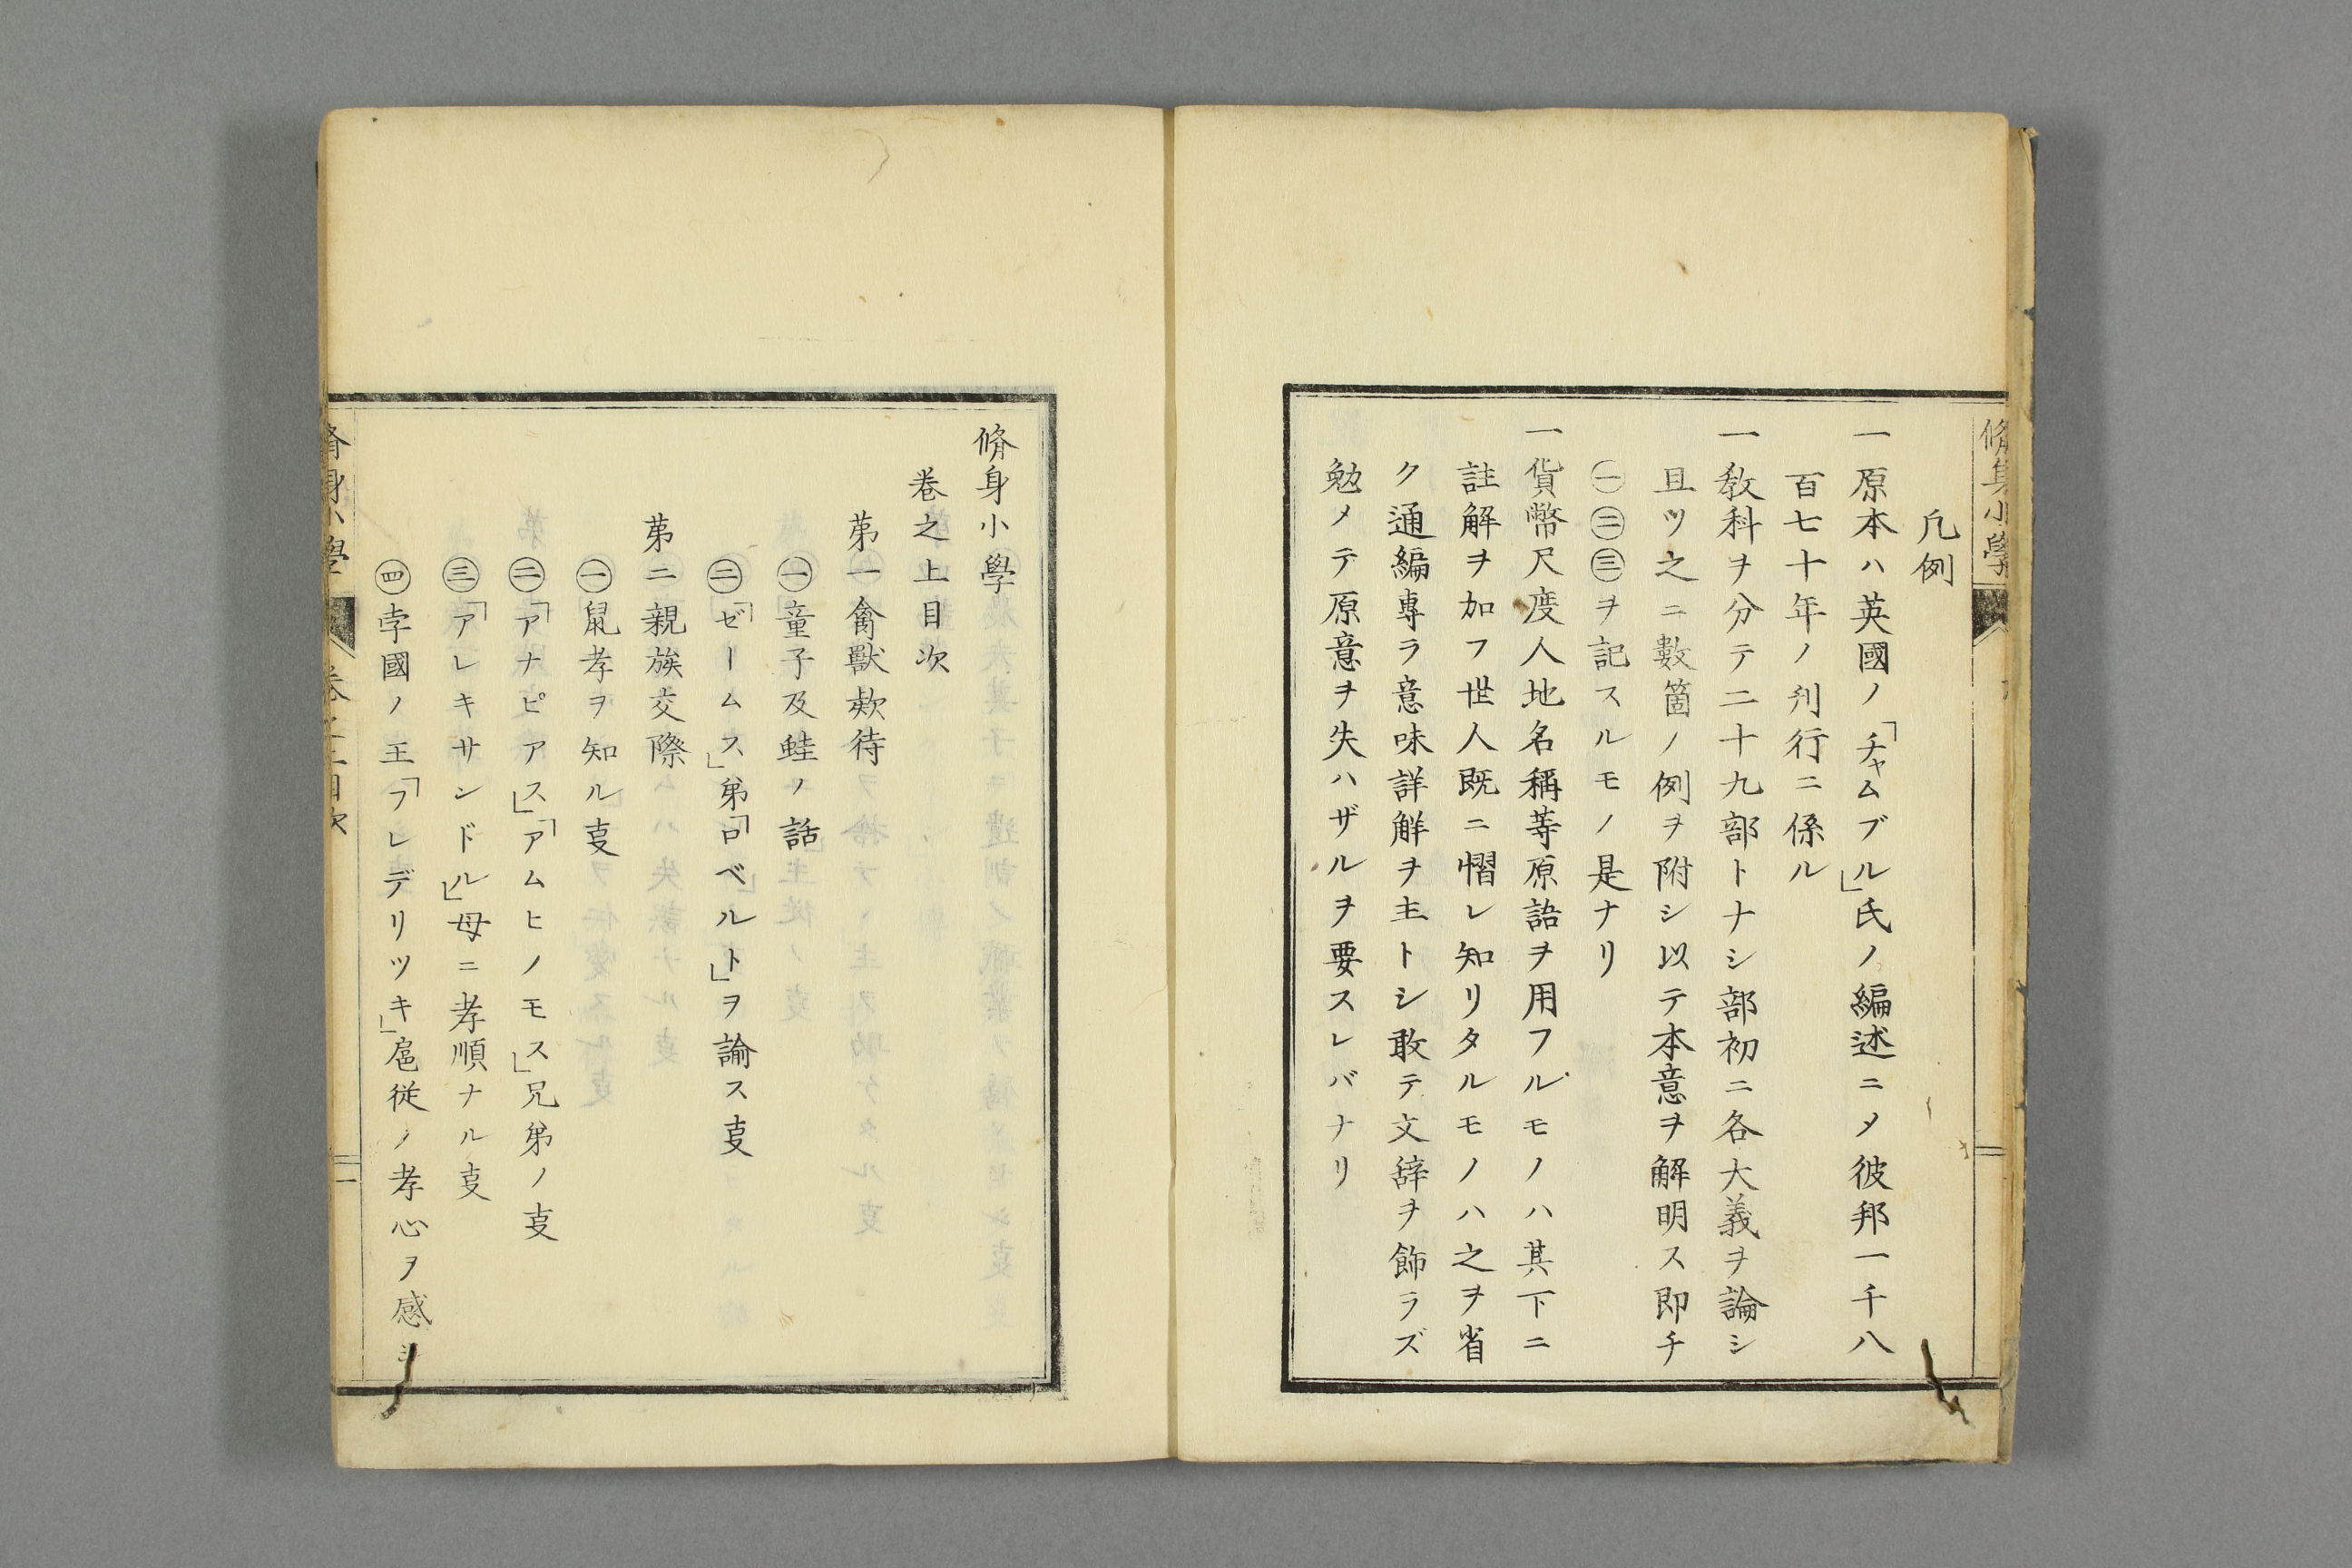 凡例
一原本ハ英國ノ「チャムブル」氏ノ編述ニメ彼邦一千八
百七十年ノ刋行ニ係ル
一敎科ヲ分テ二十九部トナシ部初ニ各大義ヲ論シ
且ツ之ニ數箇ノ例ヲ附シ以テ本意ヲ解明ス即チ
㊀㊁㊂ヲ記スルモノ是ナリ
一貨幣尺度人地名稱等原語ヲ用フルモノハ其下ニ
註解ヲ加フ世人既ニ慴レ知リタルモノハ之ヲ省
ク通編專ラ意味詳解ヲ主トシ敢テ文辞ヲ飾ラズ
勉メテ原意ヲ失ハザルヲ要スレバナリ
脩身小學
脩身小學
卷之上目次
第一禽獸欵待
㊀童子及蛙ノ話
㊁「ゼームス」弟「ロベルト」ヲ論ス叓
第二親族交際
㊀鼠孝ヲ知ル叓
㊁「アナピアス」「アムヒノモス」兄弟ノ叓
㊂「アレキサンドル」母ニ孝順ナル叓
㊃孛國ノ王「フレデリツキ」扈従ノ孝心ヲ感シ
脩身小學 卷之上目次 一